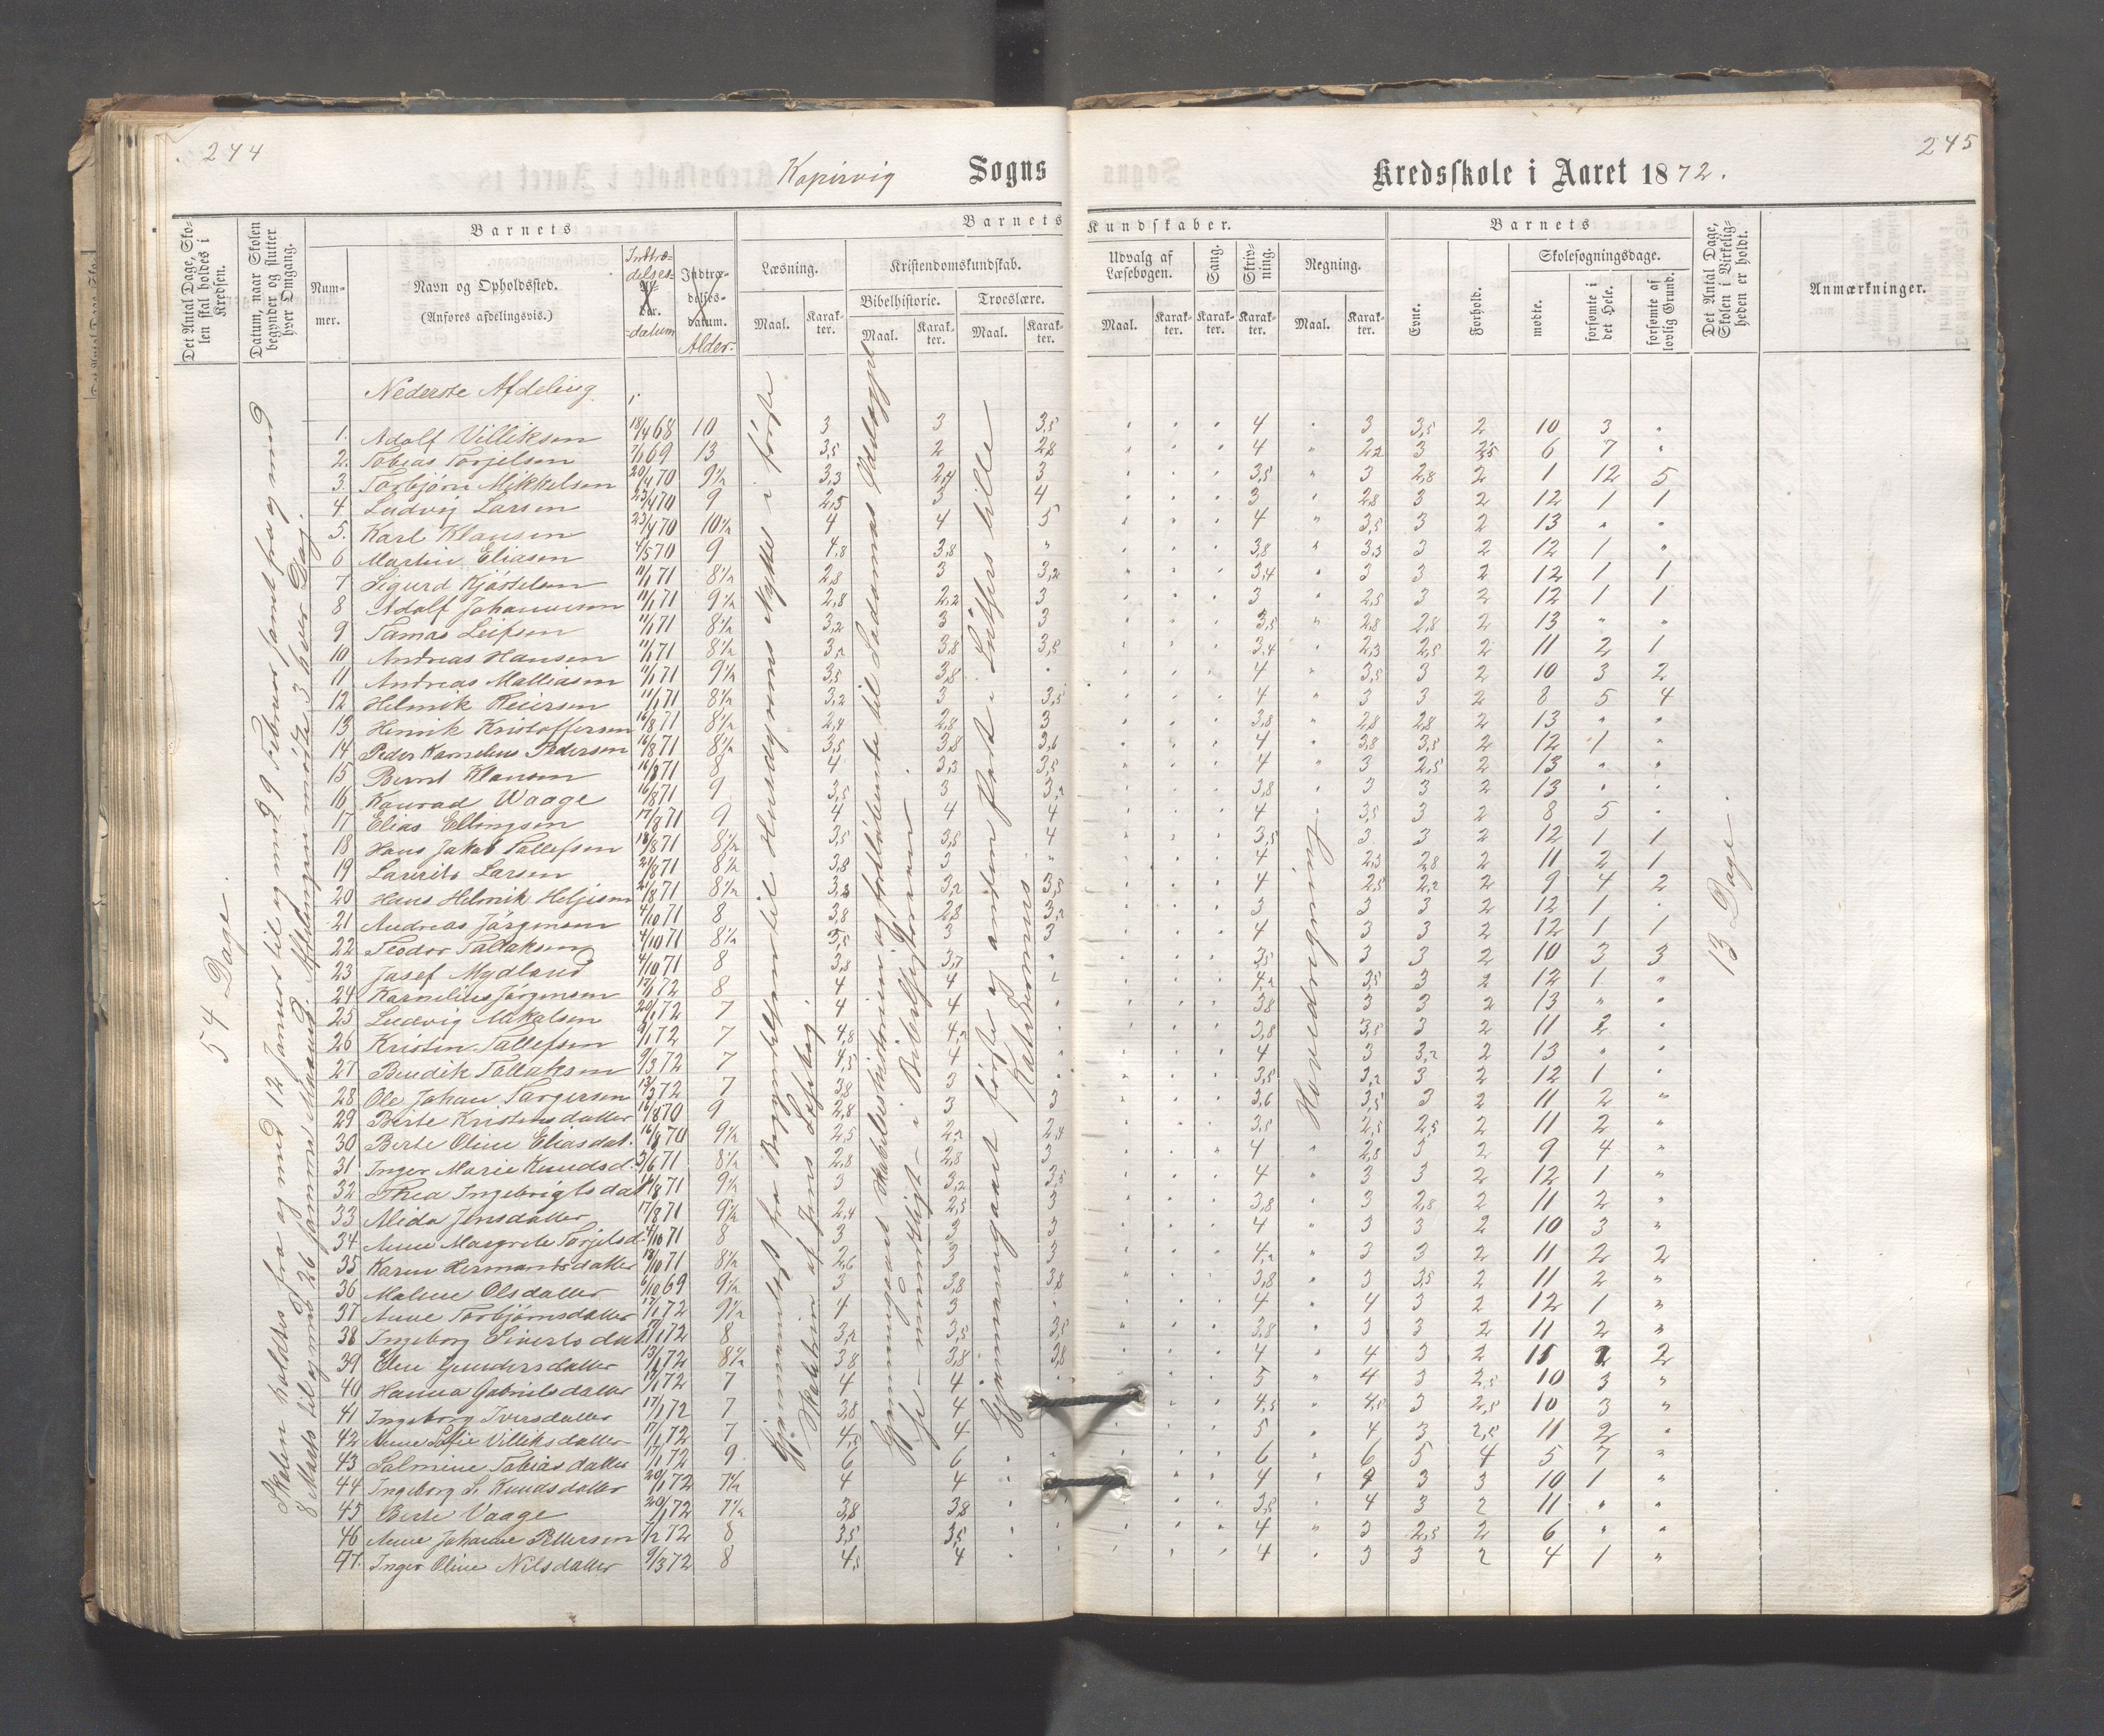 244
245
Kopervig Sogns
Kredsskole i Aaret 1872.
Det Antal Dage, Skolen skal holdes i Kredsen.
Datum, naar Skolen begynder og slutter hver Omgang.
Barnets
Nummer.
Navn og Opholdssted.
(Anføres afdelingsvis.)
Indtrædelsesdatum
Indtrædelsesdatum.
Alder.
Barnets Kundskaber.
Læsning.
Maal.
Karakter.
Kristendomskundskab.
Bibelhistorie.
Maal.
Karakter.
Troeslære.
Maal.
Karakter.
Udvalg af Læsebogen.
Maal.
Karakter.
Sang.
Karakter.
Skrivning.
Karakter.
Regning.
Maal.
Karakter.
Barnets
Evne.
Forhold.
Skolesøgningsdage.
mødte.
forsømte i det Hele.
forsømte af lovlig Grund.
Det Antal Dage, Skolen i Virkeligheden er holdt.
Anmærkninger.
54 Dage.
Nederste Afdeling.
1. Adolf Villiksen 18/4 68 10 3 3 3,5 4 3 3,5 2 10 3
2. Tobias Torjelsen 7/1 69 13 3,5 2 2,8 4 2,2 3 2,5 6 7
3. Torbjörn Mikkelsen 20/4 70 9½ 3,3 2,4 3 3,5 3 2,8 2 1 12 5
4. Ludvig Larsen 23/4 70 9 2,5 3 4 3 2,8 3 2 12 1 1
5. Karl Klausen 23/4 70 10½ 4 4 5 4 3,5 3 2 13
6 Martin Eliasen 4/5 70 9 4,8 3,8 3,8 3,3 3 2 12 1
7 Sigurd Kjöstelsen 11/1 71 8½ 2,8 3 3,2 3,4 3 3 2 12 1 1
8 Adolf Johannesen 11/1 71 9½ 2,8 2,2 3 3 2,5 3 2 12 1 1
9 Tamas Leifsen 11/1 71 8½ 3,2 3 3 3,5 2,8 2,8 2 13
10 Andreas Hansen 11/1 71 8½ 3,2 3,8 3,5 3,4 2,3 2,5 2 11 2 1
11 Andreas Matiasen 11/1 71 9½ 3,5 3,8 4 3,5 3 2 10 3 2
12 Helmik Reiersen 11/1 71 8½ 3,2 3 3,5 4 3 3 2 8 5 4
13 Henrik Kristoffersen 16/8 71 8½ 2,4 2,8 3 3,8 2,8 2,8 2 13
14 Peder Kornelius Pedersen 16/8 71 8½ 3,5 3,8 3,6 4 3,8 3,5 2 12 1
15 Bernt Klausen 16/8 71 8 4 3,3 3,5 4 3 2,5 2 13
16 Konrad Waage 16/8 71 9 3,5 3 3,2 3,8 3 3 2 13
17 Elias Ellingsen 17/8 71 9 4 4 4 4 3,5 3 2 8 5
18 Hans Jakob Tallefsen 18/8 71 8½ 3,5 3,5 4 3,5 3 3 2 12 1 1
19 Laurits Larsen 21/8 71 8½ 3,8 3 4 2,3 2,8 2 11 2 1
20 Hans Helmik Heljesen 21/8 71 8½ 3,3 3,2 3,5 4 2,5 2,2 2 9 4 2
21 Andreas Jörgensen 4/10 71 8 3,8 2,8 3,2 3 3 3 2 12 1
22 Teodor Tallaksen 4/10 71 8½ 3,5 3 3 4 3 3 2 12 1 1
23 Josef Mydland 4/10 71 8 3,8 3,7 3,5 3 3 2 10 3 3
24 Kornelius Jörgensen 17/1 72 8 4 4 4,2 3,5 3 2 12 1
25 Ludvig Mikalsen 20/1 72 7 4 4 3,8 3 3 2 13
26 Kristin Tallefsen 72 7 4,8 4,2 3,8 3,5 3 2 11 2
27 Bendik Tallaksen 9/3 72 7 4,5 4 4 3 3,2 2 13
28 Ole Johan Torgersen 13/3 72 7 3,8 3 3,5 3,2 3 2 12 1
29 Berte Kristensdatter 16/8 70 9 2,8 3 3 3,6 3,5 3 2 11 2
30 Berte Oline Eliasdat. 16/8 70 9½ 2,5 2,2 2,4 3,5 2,5 2,5 2 11 2
31 Inger Marie Knudsd. 3/6 71 8½ 2,8 2,8 3 4 2,8 3 2 9 4
32 Thea Ingebrigtsdat. 71 9½ 3 3,2 3,5 4 3 3 2 12 1
33 Alida Jensdatter 17/8 71 9½ 2,4 2,5 3 3,8 3 2,8 2 11 2
34 Anne Margrete Torjelsd. 4/10 71 8 3 3 3 4 3 3 2 10 3
35 Karen Hermansdatter 18/10 71 8½ 2,6 3 3 4,2 3 3 2 11 2 2
36 Malene Olsdatter 6/10 69 9½ 3 3,8 3,8 3,8 3 3,5 2 11 2
37 Anne Torbjörnsdatter 17/1 72 9½ 4 3 4 4 3 2 12 1
38 Ingeborg Sivertsdat. 17/1 72 8 3,2 3,5 3,5 3,8 3 3 2 11 2
39 Elen Gundersdatter 72 8½ 3,8 3,8 3,8 4 4 3 2 2 2
40 Hanna Gabrielsdatter 17/1 72 7 4 4 5 4 3 2,5 10 3
41 Ingeborg Iversdatter 17/1 72 7 3,8 4 4,5 4,5 3 2,5 10 3
42 Anne Sofie Villiksdatter 17/1 72 7 4,5 4 5 4 3 2,5 11 2
43 Salmine Tobiasdatter 17/1 72 9 6 6 6 6 5 4 5 7
44 Ingeborg S. Knudsdatter 20/1 72 7½ 4 4 4 4 3 3 10 1
45 Berte Vaage 20/1 72 7½ 3,8 3,8 3,5 4 3 2 11
46 Anne Johanne Pettersen 7/2 72 8 3,5 3,5 4 3 2,5 2 6
47. Inger Oline Nilsdatter 9/3 72 8 4,5 4 4 3 3 2 4 1
Skolen holdtes fra og med 12 Januar til og med 9 Februar samt fra og med
8 Marts til og med 26 samme Maaned. Afdelingen mødte 3 hver Dag.
Gjennemläst fra Begyndelsen til Husdyrenes Nytte i første
af Jens Läsebog
Gjennemgaaet Bibelhistorien fortløbende til Sodomas Ødelæggelse – mundtligt – i
Gjennemgaaet første og anden Part i Luthers lille Katekismus
Hovedregning.
13 Dage.